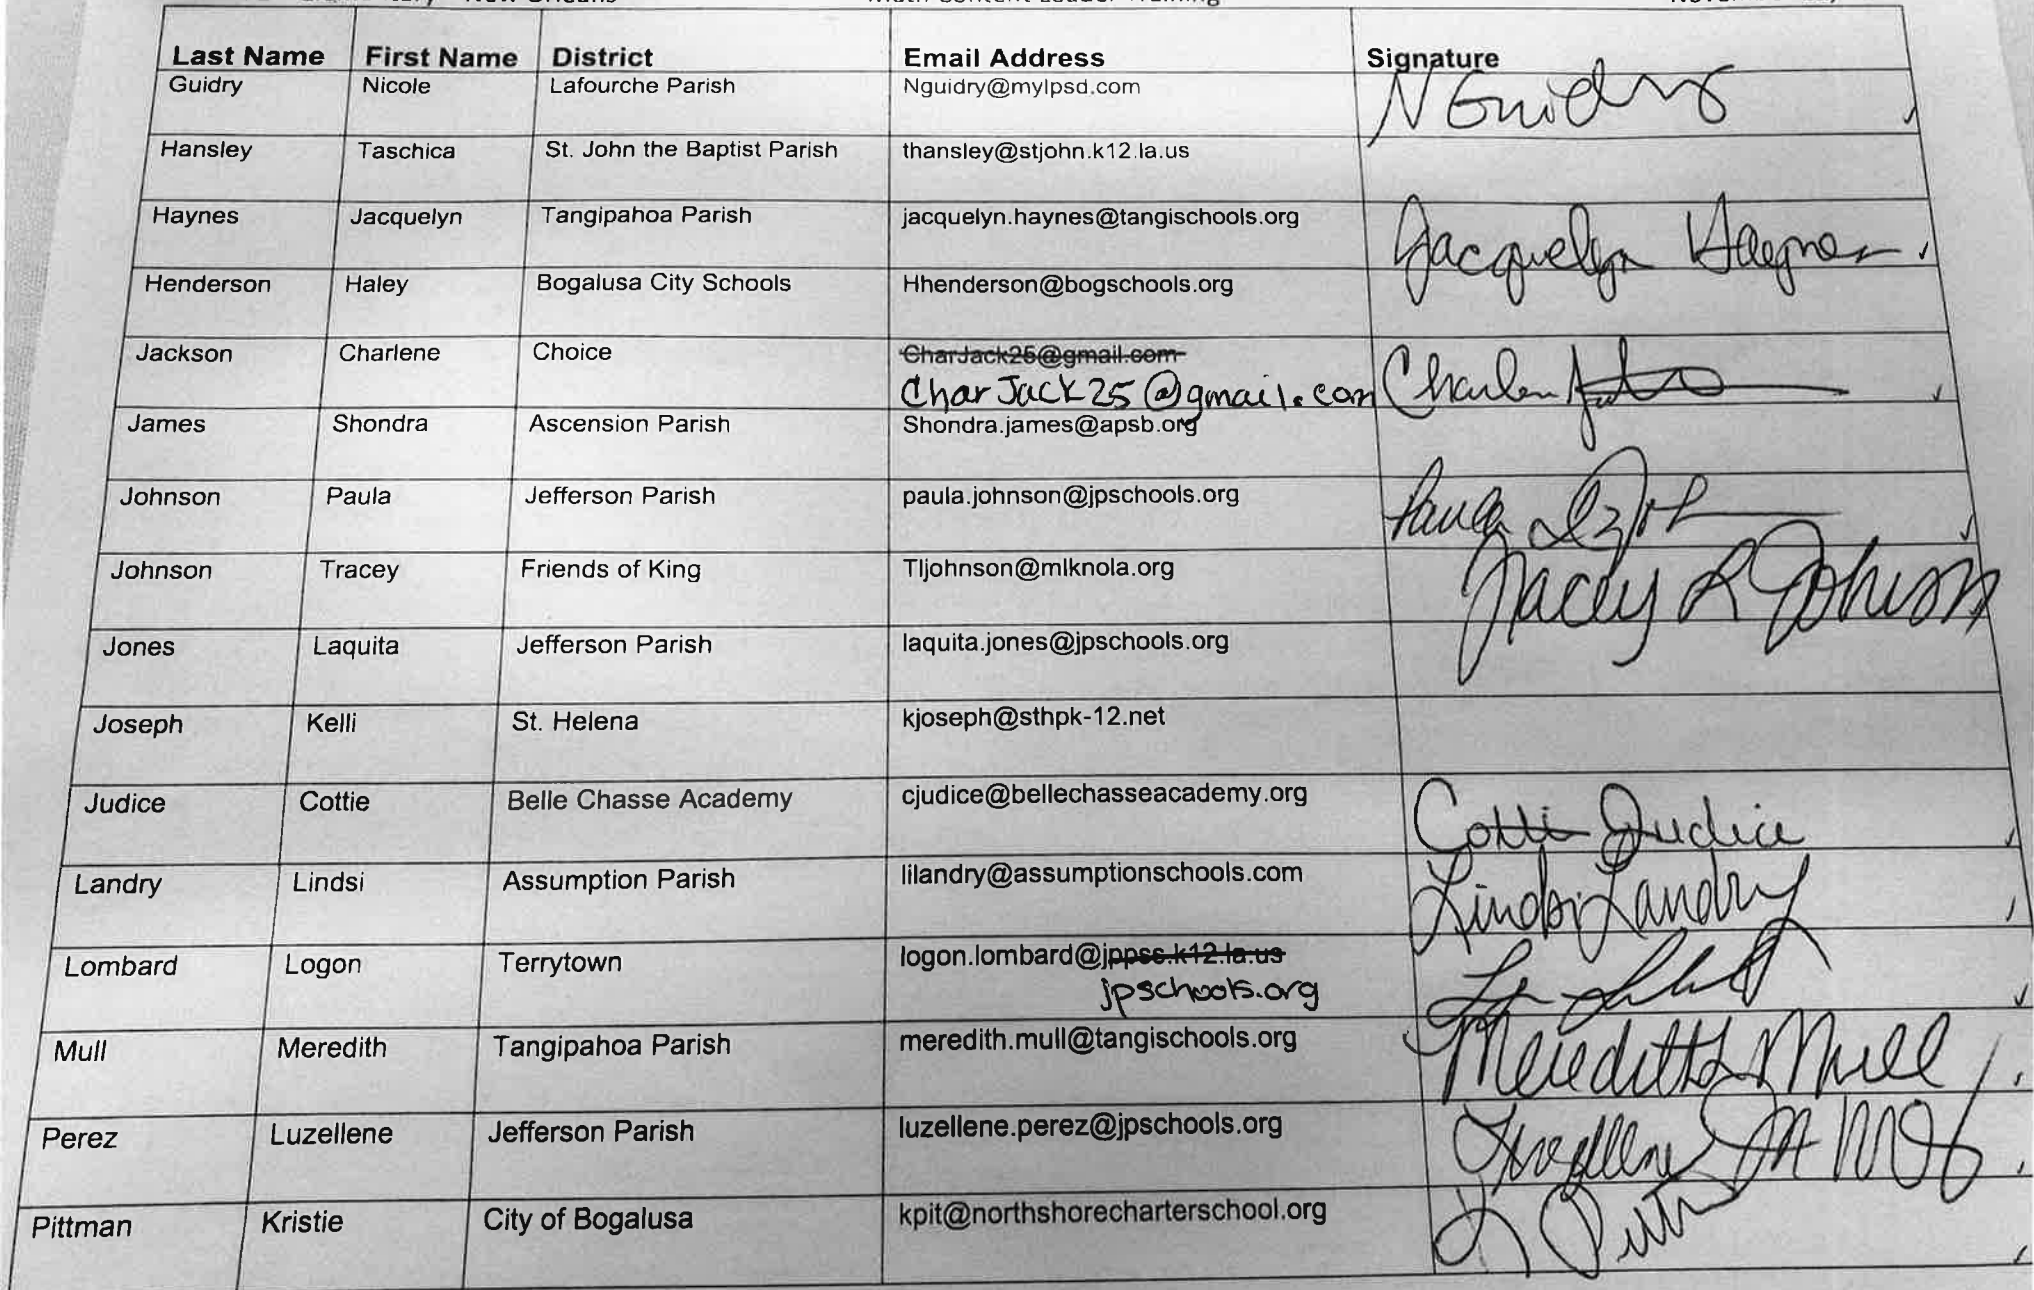 New Orleans
Math Content Leader Training
Last Name First Name District Email Address Signature
Guidry Nicole Lafourche Parish Nguidry@mylpsd.com N Guidry
Hansley Taschica St. John the Baptist Parish thansley@stjohn.k12.la.us
Haynes Jacquelyn Tangipahoa Parish jacquelyn.haynes@tangischools.org Jacquelyn Haynes
Henderson Haley Bogalusa City Schools Hhenderson@bogschools.org
Jackson Charlene Choice CharJack25@gmail.com
CharJack25@gmail.com
James Shondra Ascension Parish Shondra.james@apsb.org
Johnson Paula Jefferson Parish paula.johnson@jpschools.org Paula
Johnson Tracey Friends of King Tljohnson@mlknola.org Tracey L Johnson
Jones Laquita Jefferson Parish laquita.jones@jpschools.org
Joseph Kelli St. Helena kjoseph@sthpk-12.net
Judice Cottie Belle Chasse Academy cjudice@bellechasseacademy.org Cottie Judice
Landry Lindsi Assumption Parish lilandry@assumptionschools.com Lindsi Landry
Lombard Logon Terrytown logon.lombard@jppss.k12.la.us
jpschools.org
Mull Meredith Tangipahoa Parish meredith.mull@tangischools.org Meredith Mull
Perez Luzellene Jefferson Parish luzellene.perez@jpschools.org Luzellene
Pittman Kristie City of Bogalusa kpit@northshorecharterschool.org